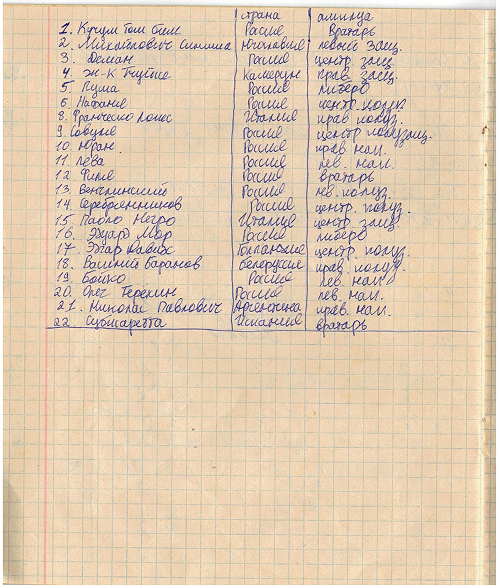 страна амплуа
1. Кучум Том Бши Россия Вратарь
2. Михайлович Синиша Югославия левый защ.
3. Деман Россия центр. защ.
4. Ж-К Тчутче Камерун прав. защ.
5. Луша Россия либеро
6. Нафаня Россия центр. полуз.
8. Франческо Лопес Италия прав. полуз.
9. Савуня Россия центр полузащ.
10. Юран Россия прав. нап.
11. Лева Россия лев. нап.
12. Филя Россия вратарь
13. Венглинский Россия лев. полуз.
14. Серебрянников Россия центр. полуз.
15. Паоло Негро Италия центр. защ
16. Эдуард Мор Россия либеро
17. Эдгар Давидс Голландия центр. полуз.
18. Василий Баранов Белоруссия прав. полуз.
19. Бойко Россия лев. нап.
20. Олег Терехин Россия лев. нап.
21. Николас Павлович Аргентина прав. нап.
22. Субисаретта Испания вратарь